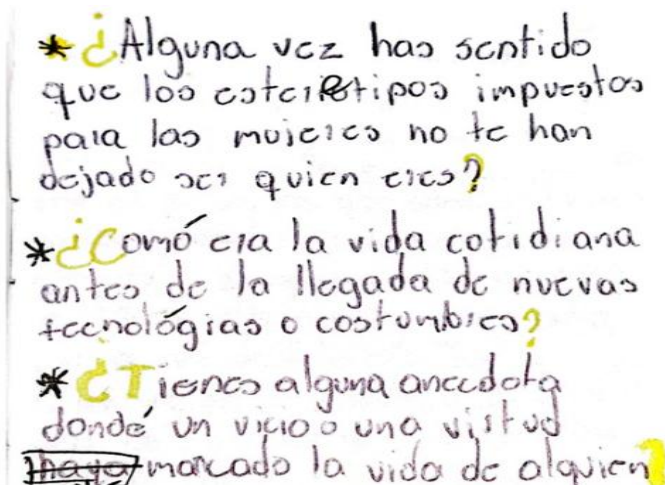 * ¿Alguna vez has sentido
que los estereotipos impuestos
para las mujeres no te han
dejado ser quien eres?
* ¿Comó era la vida cotidiana
antes de la llegada de nuevas
tecnológias o costumbres?
* ¿Tienes alguna anecdota
dondé un vicio o una virtud
haya marcado la vida de alguien?